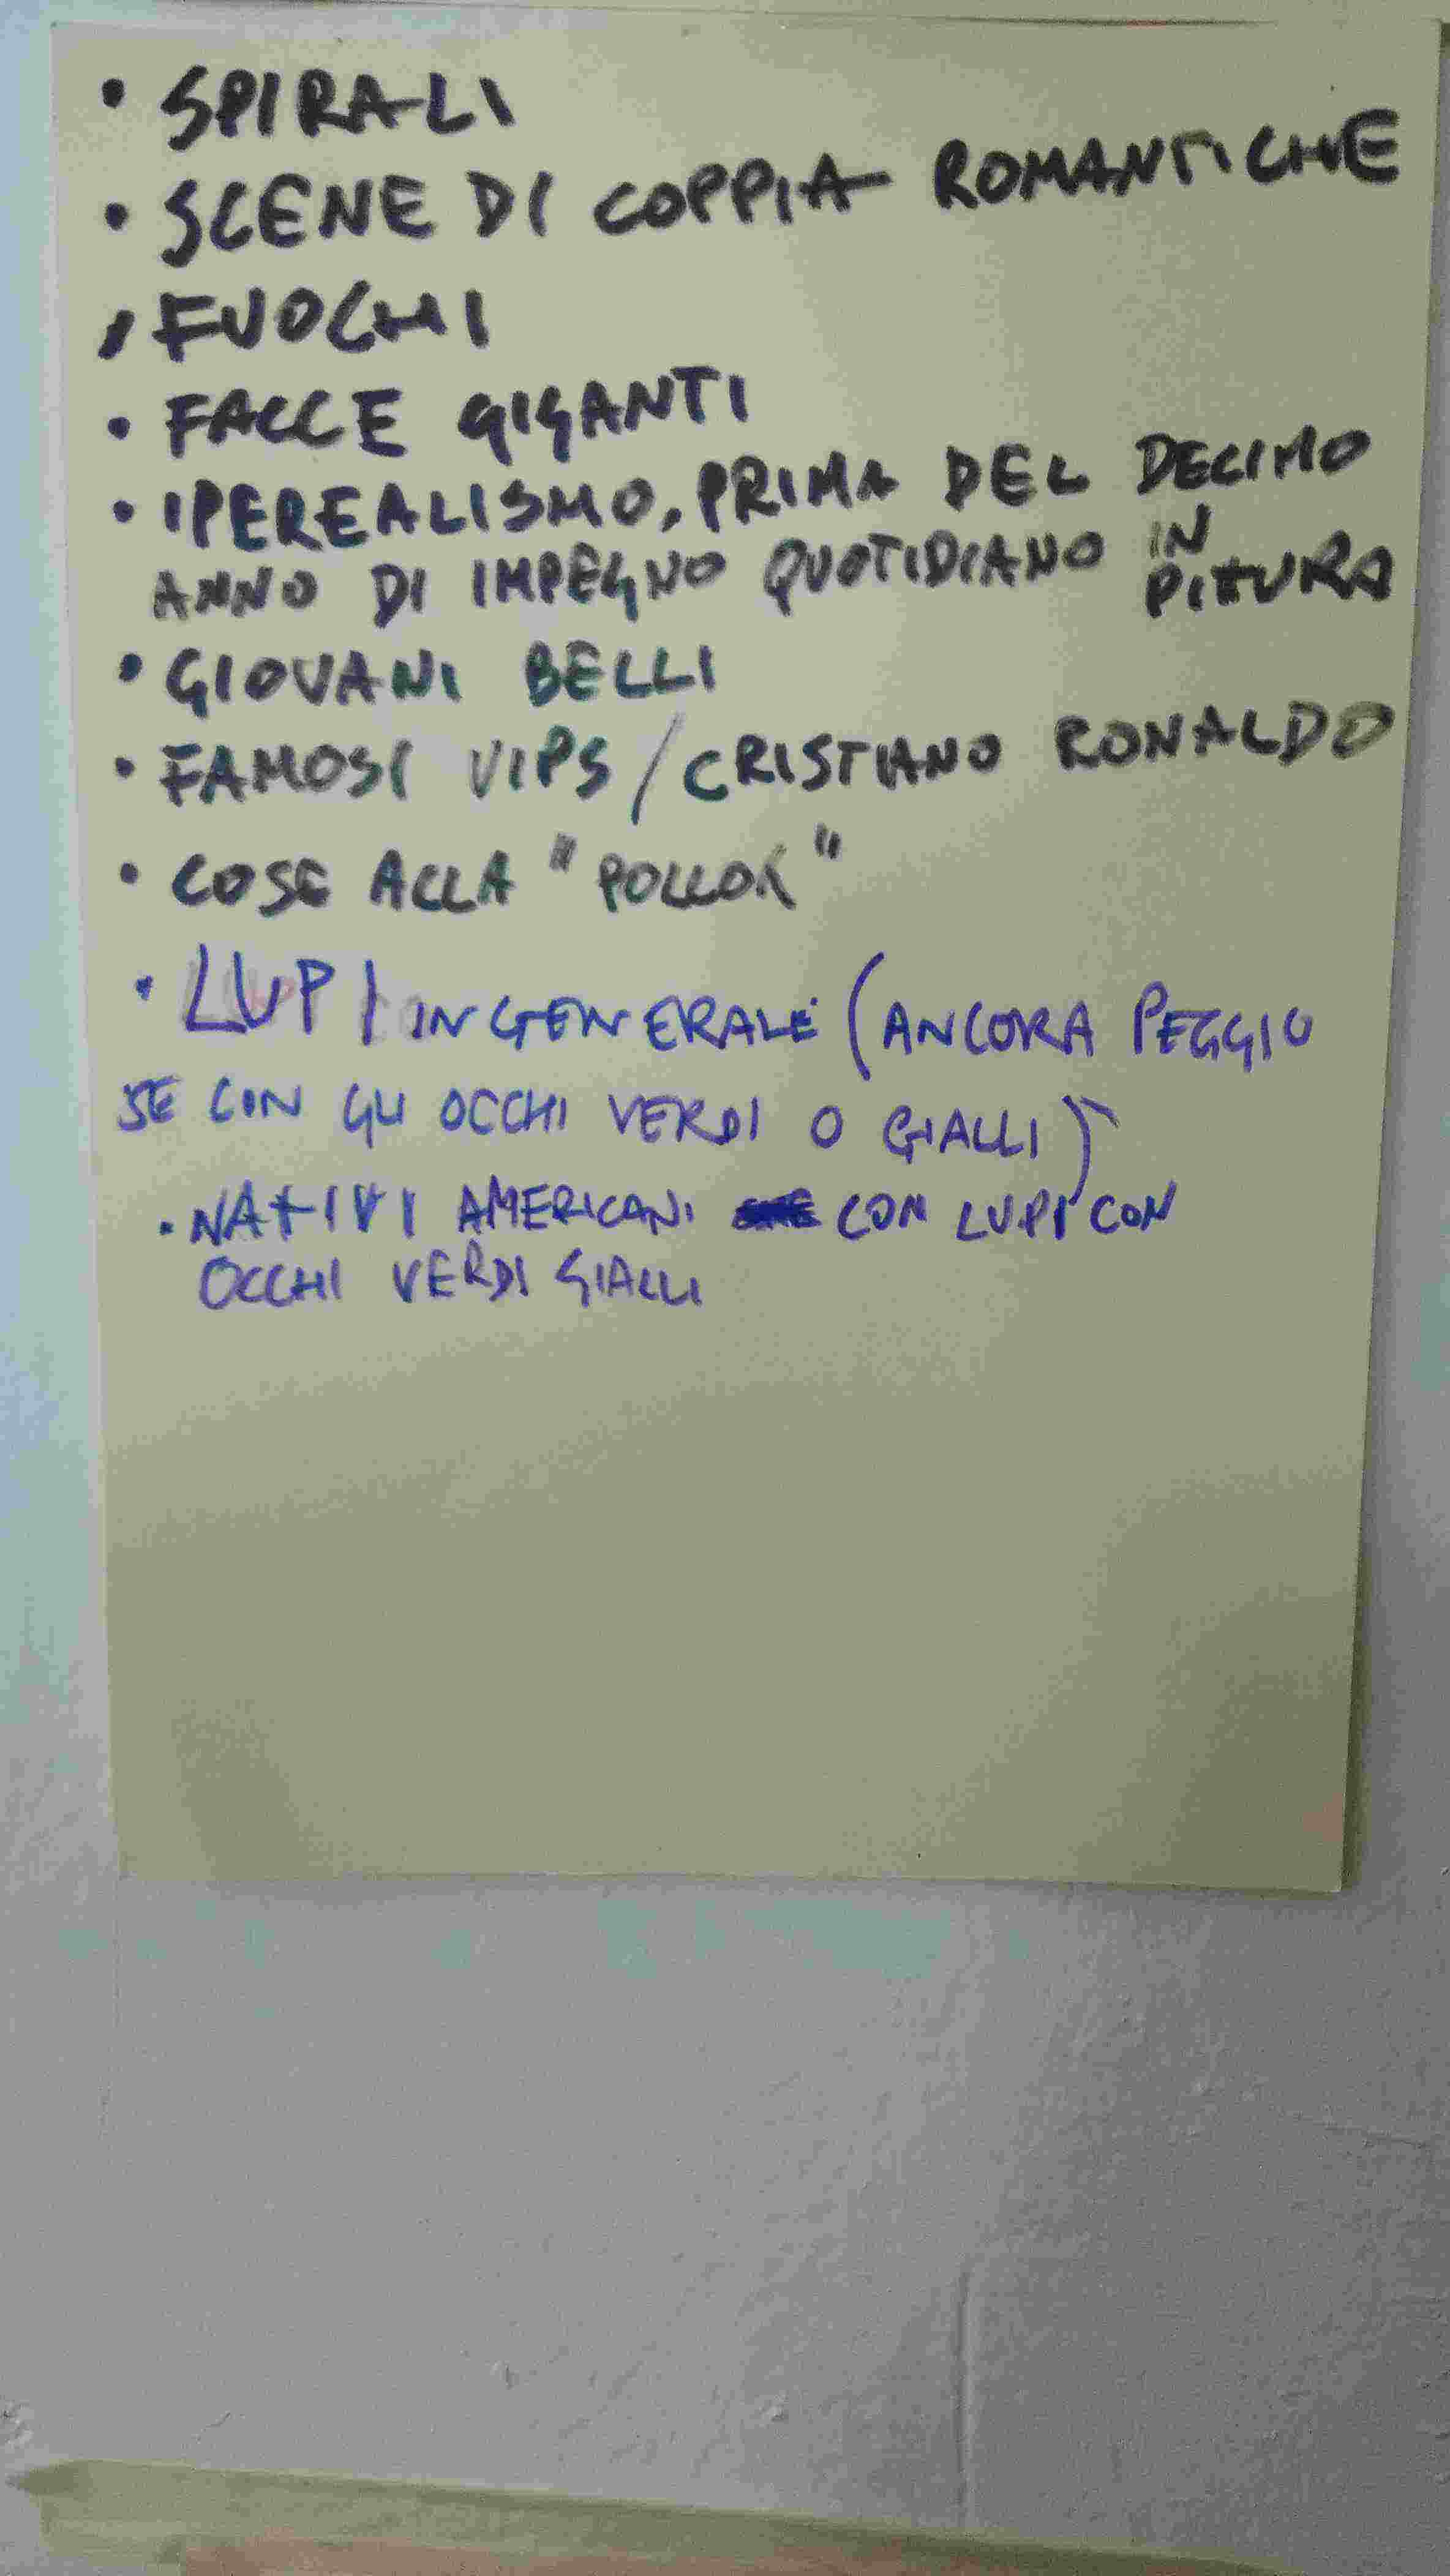 • SPIRALI
• SCENE DI COPPIA ROMANTICHE
• FUOCHI
• FACCE GIGANTI
• IPEREALISMO, PRIMA DEL DECIMO
ANNO DI IMPEGNO QUOTIDIANO IN PITTURA
• GIOVANI BELLI
• FAMOSI VIPS / CRISTIANO RONALDO
• COSE ALLA "POLLOK"
• LUPI IN GENERALE (ANCORA PEGGIO
SE CON GLI OCCHI VERDI O GIALLI)
• NATIVI AMERICANI CON LUPI CON
OCCHI VERDI GIALLI